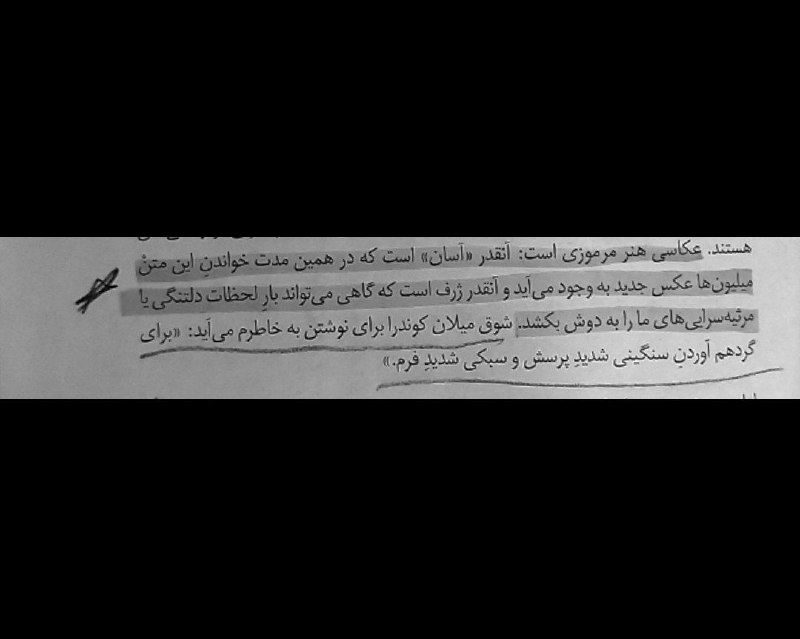 هستند. عکاسی هنر مرموزی است: آنقدر «آسان» است که در همین مدت خواندنِ این متنْ
میلیون‌ها عکس جدید به وجود می‌آید و آنقدر ژرف است که گاهی می‌تواند بارِ لحظات دلتنگی یا
مرثیه‌سرایی‌های ما را به دوش بکشد. شوق میلان کوندرا برای نوشتن به خاطرم می‌آید: «برای
گردهم آوردنِ سنگینی شدیدِ پرسش و سبکی شدیدِ فرم.»